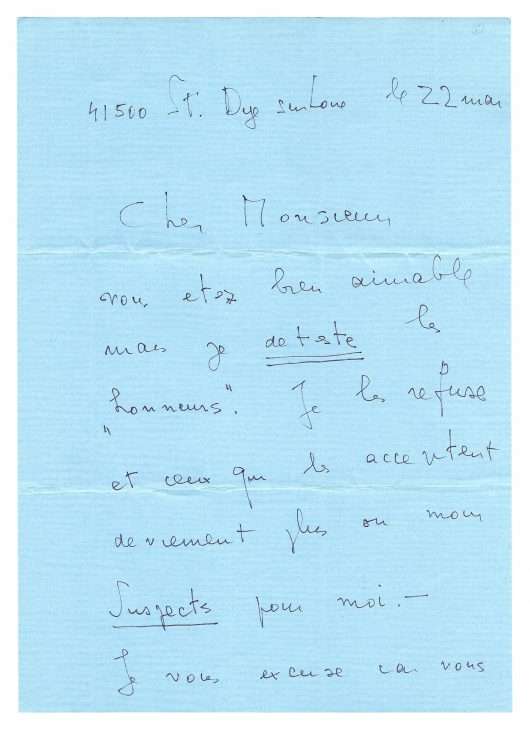 41500 St. Dyé sur Loire le 22 mai
Cher Monsieur
vous etez bien aimable
mais je deteste les
"honneurs". Je les refuse
et ceux qui les acceptent
deviennent plus ou moins
Suspects pour moi. —
Je vous excuse car vous